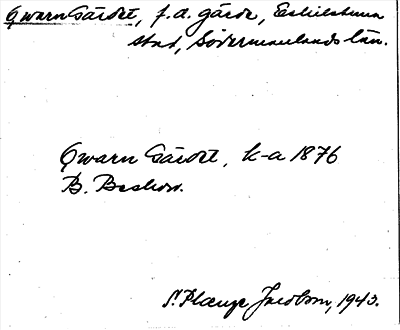 Qwarn Gärdet, f.d. gärde, Eskilstuna
stad, Södermanlands län.
Qwarn Gärdet, k-a 1876
B. Beskow.
Jacobson, 1943.